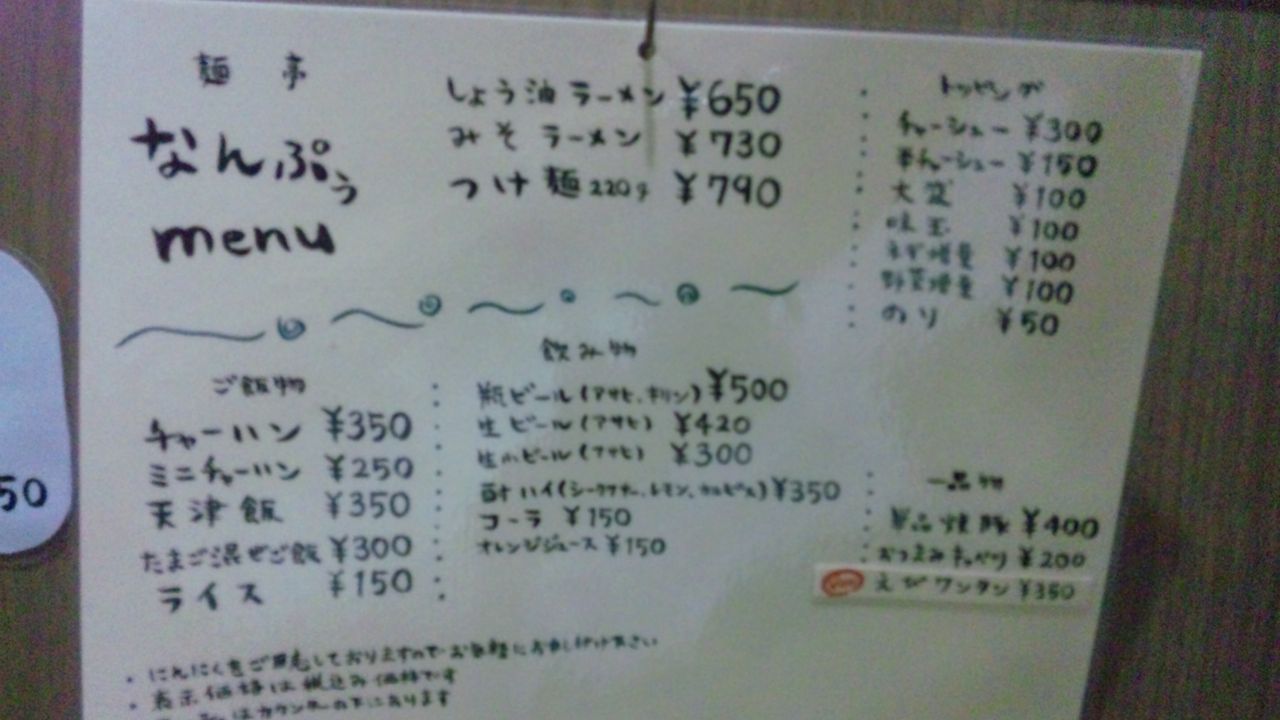 麺 亭
なんぷぅ
menu
しょう油 ラーメン ¥650
みそ ラーメン ¥730
つけ麺 220g ¥790
トッピング
チャーシュー ¥300
半チャーシュー ¥150
大盛 ¥100
味玉 ¥100
ネギ増量 ¥100
野菜増量 ¥100
のり ¥50
ご飯物
チャーハン ¥350
ミニチャーハン ¥250
天津飯 ¥350
たまご混ぜご飯 ¥300
ライス ¥150
飲み物
瓶ビール(アサヒ、キリン) ¥500
生ビール(アサヒ) ¥420
生小ビール(アサヒ) ¥300
酎ハイ(シークワサー、レモン、カルピス) ¥350
コーラ ¥150
オレンジジュース ¥150
一品物
単品焼豚 ¥400
おつまみ ¥200
えびワンタン ¥350
・にんにくをご用意しておりますのでお気軽にお申し付け下さい
・表示価格は税込み価格です
はカウンターの下にあります
50